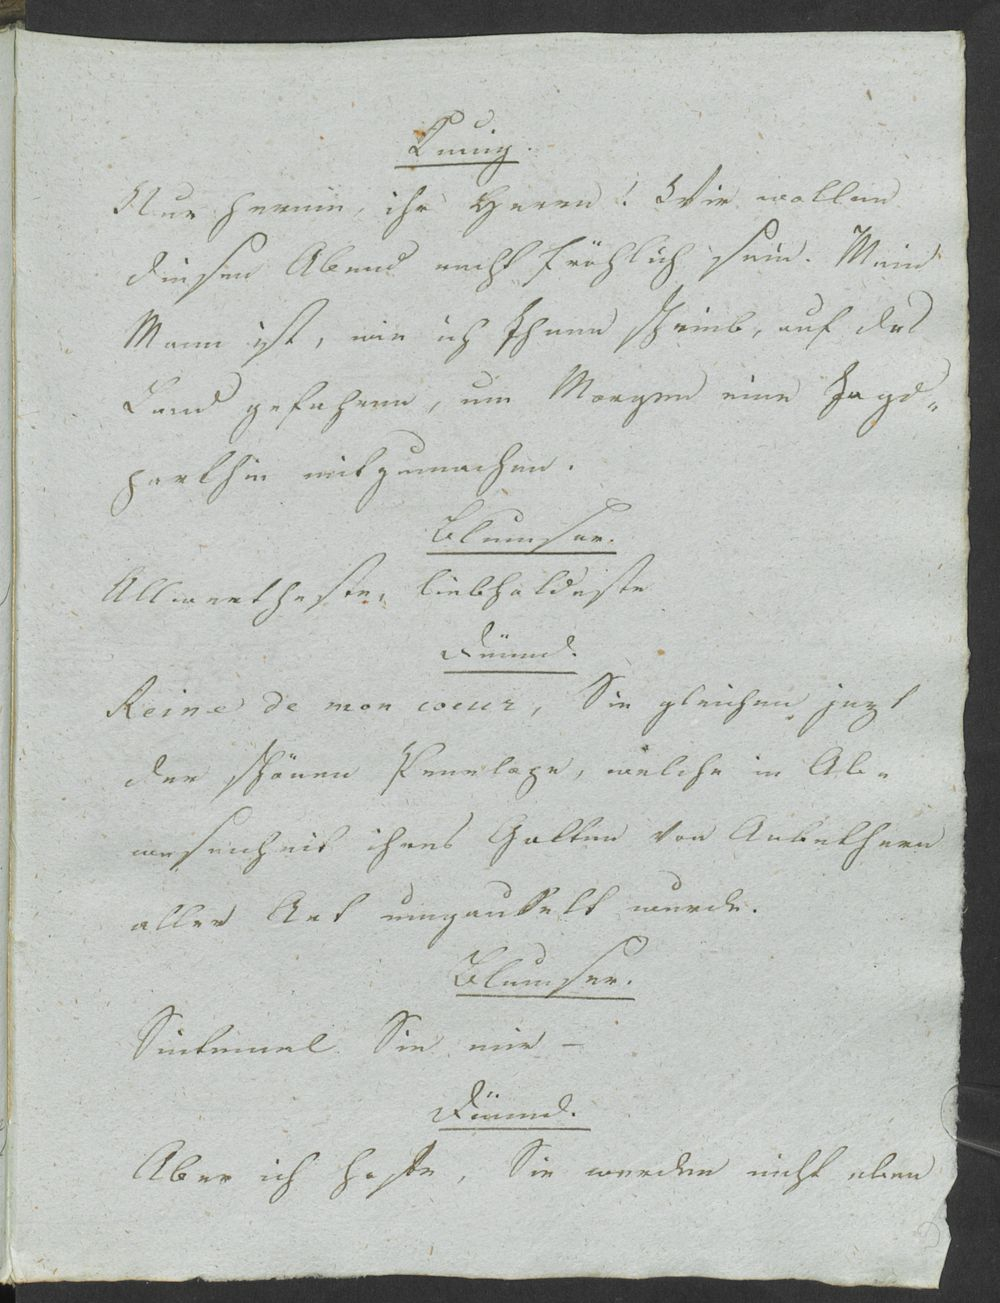 Nur herein, ihr Herrn! Wir wollen
diesen Abend recht fröhlich sein. Mein
Mann ist, wie ich Ihnen schrieb, auf das
Land gefahren, um Morgen eine Jagd„
parthie mitzumachen.
Blumser.
Allwertheste, liebholdeste
Reine de mon coeur, Sie gleichen jezt
der schönen Penelope, welche in Ab„
wesenheit ihres Gatten von Anbethern
aller Art umgaukelt wurde.
Blumser.
Sintemal Sie mir –
Aber ich hoffe, Sie werden nicht eben